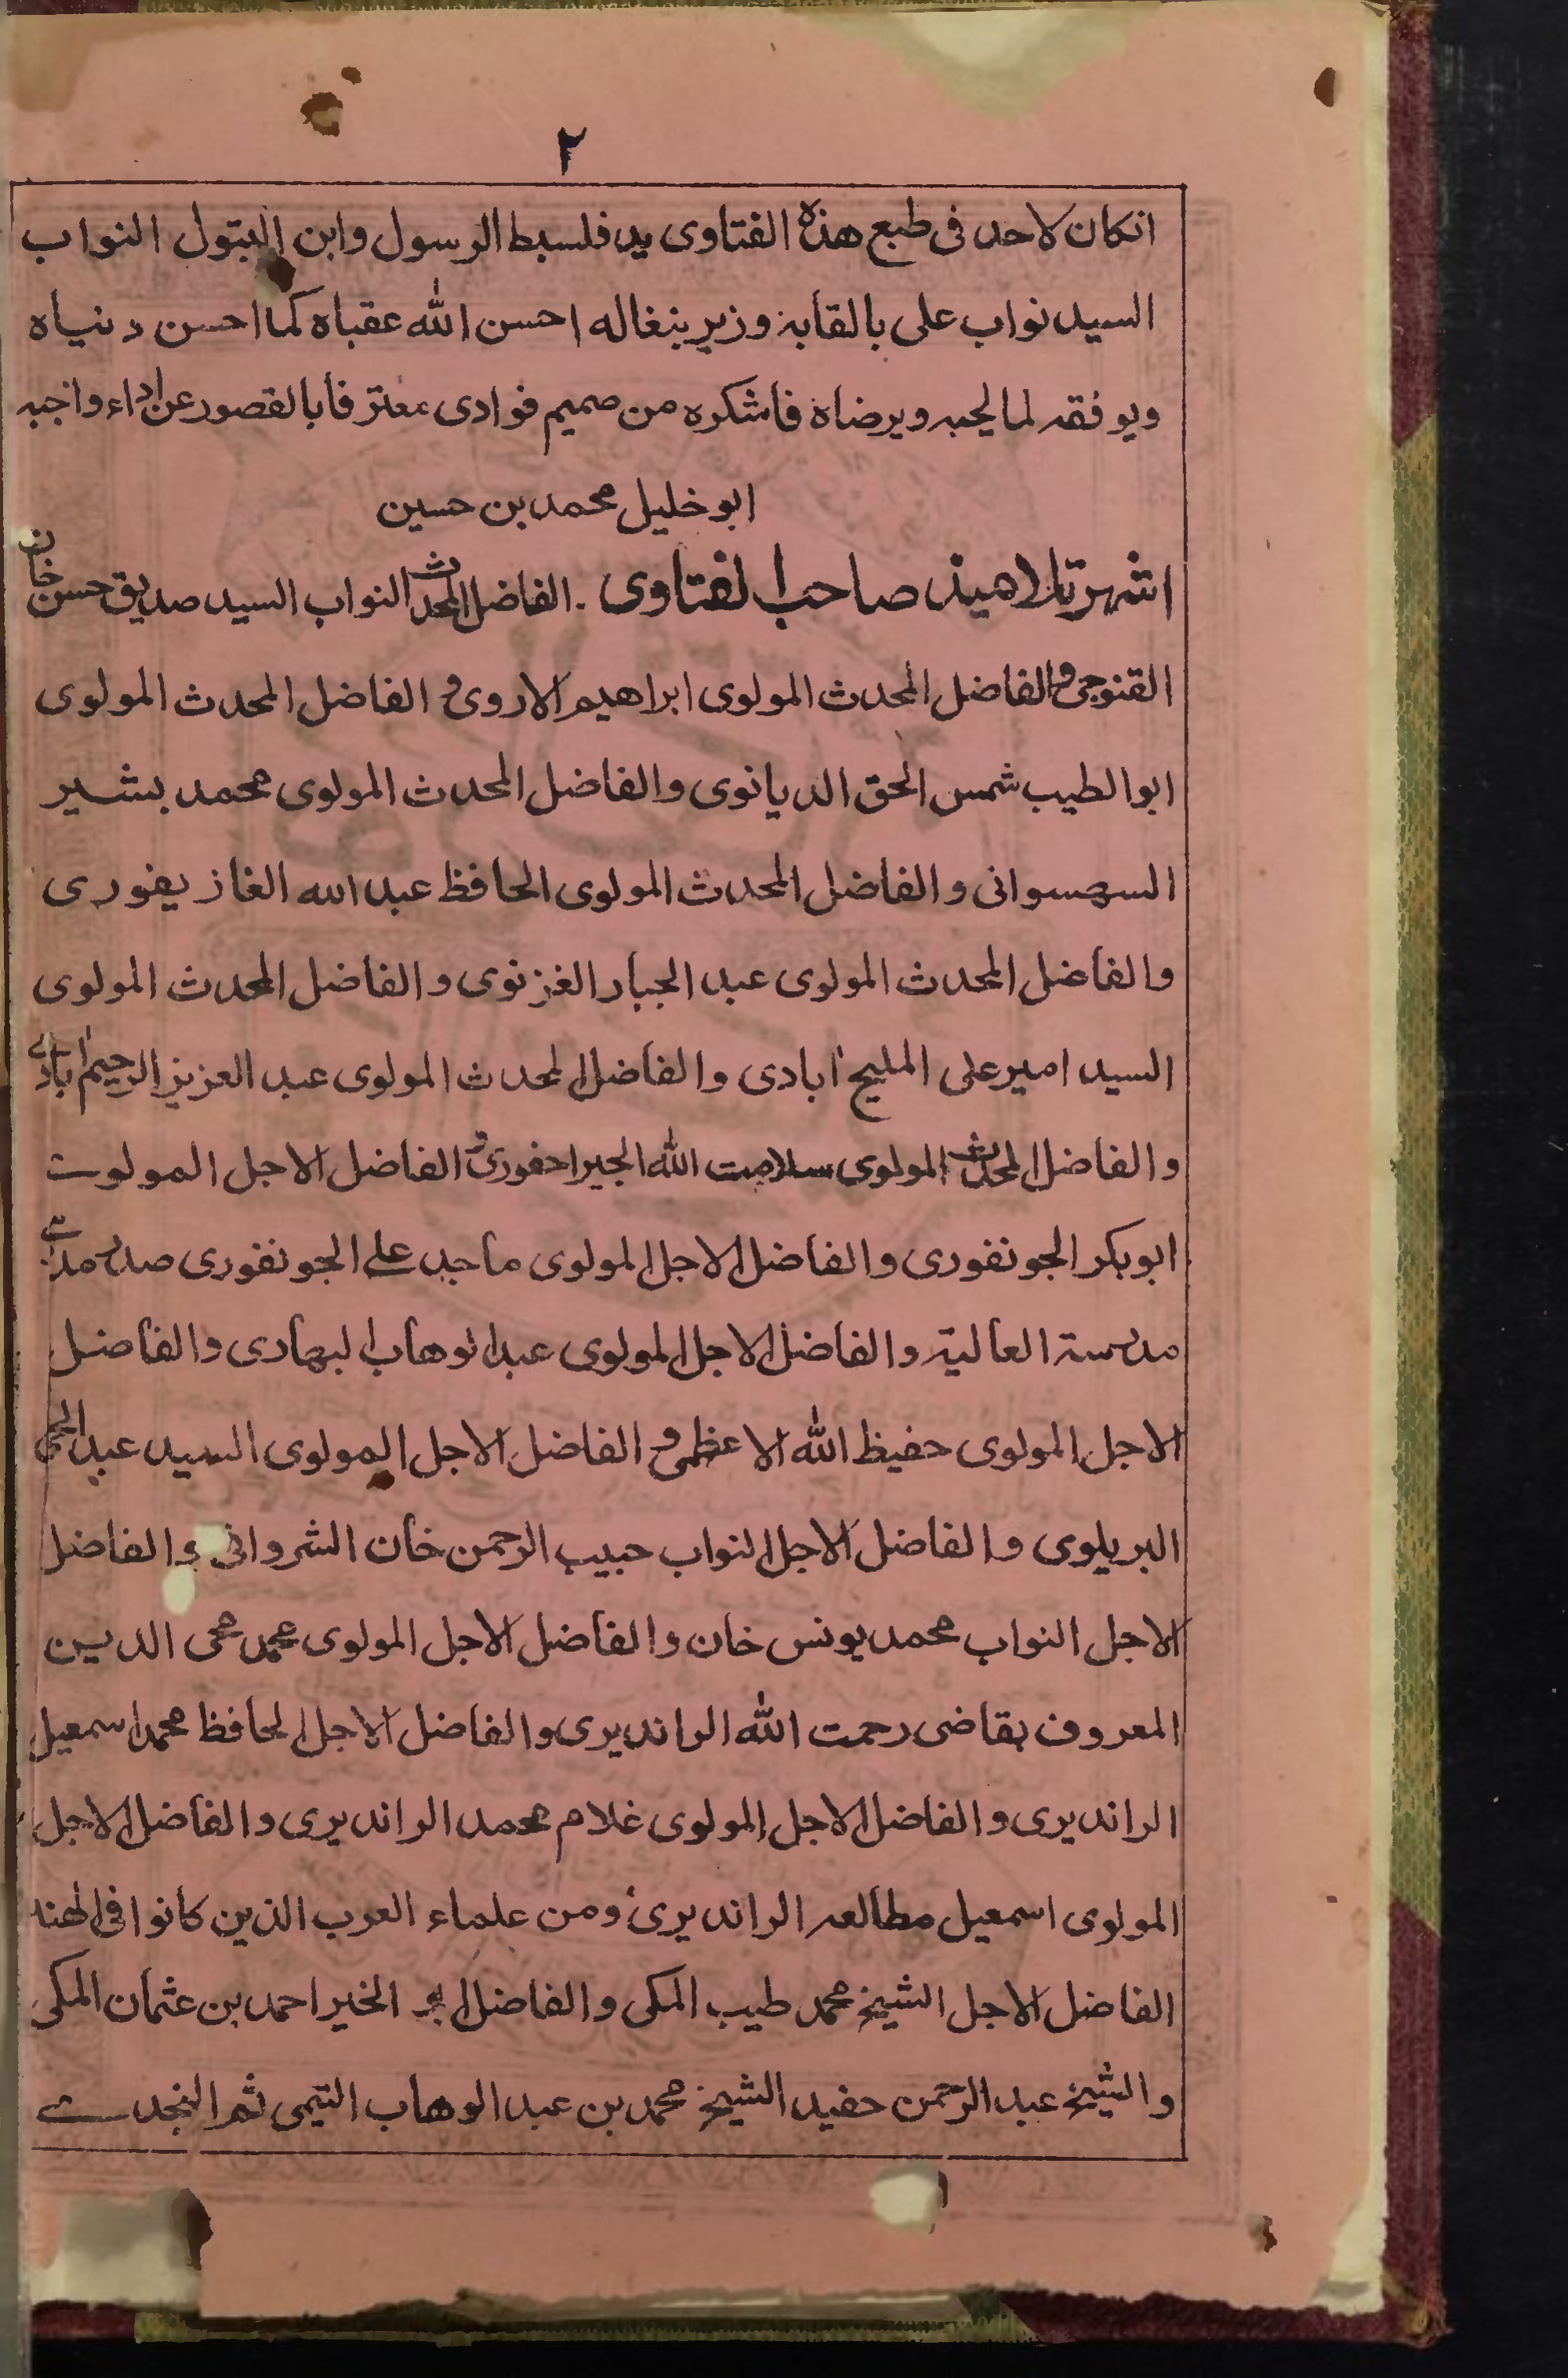 ٢
انكان لاحد فى طبع هذه الفتاوى يد فلسبط الرسول وابن البتول النواب
السيد نواب على بالقابه وزير بنغاله احسن الله عقباه كما احسن دنياه
ويوفقه لما يحبه ويرضاه فاشكره من صميم فوادى معترفا بالقصور عن اداء واجبه
ابو خليل محمد بن حسين
اشهر تلاميذ صاحب الفتاوى . الفاضل المحدث النواب السيد صديق حسن خان
القنوجى والفاضل المحدث المولوى ابراهيم الاروى و الفاضل المحدث المولوى
ابوالطيب شمس الحق الديانوى والفاضل المحدث المولوى محمد بشير
السهسوانى والفاضل المحدث المولوى الحافظ عبد الله الغازيفورى
والفاضل المحدث المولوى عبد الجبار الغزنوى والفاضل المحدث المولوى
السيد امير على المليح ابادى والفاضل المحدث المولوى عبد العزيز الرحيم ابادى
والفاضل المحدث المولوى سلامت الله الجيراجفورى و الفاضل الاجل المولوى
ابوبكر الجونفورى والفاضل الاجل المولوى ماجد على الجونفورى صدر مدرسى
مدرسة العالية والفاضل الاجل المولوى عبد الوهاب البهارى والفاضل
الاجل المولوى حفيظ الله الاعظمى و الفاضل الاجل المولوى السيد عبد الحى
البريلوى والفاضل الاجل النواب حبيب الرحمن خان الشروانى والفاضل
الاجل النواب محمد يونس خان والفاضل الاجل المولوى محمد محى الدين
المعروف بقاضى رحمت الله الراندیرى والفاضل الاجل الحافظ محمد اسمعيل
الراندیرى والفاضل الاجل المولوى غلام محمد الراندیرى والفاضل الاجل
المولوى اسمعيل مطالعه الراندیرى ومن علماء العرب الذين كانوا فى الهند
الفاضل الاجل الشيخ محمد طيب المكى والفاضل ابو الخير احمد بن عثمان المكى
والشيخ عبد الرحمن حفيد الشيخ محمد بن عبد الوهاب التيمى ثم النجدى